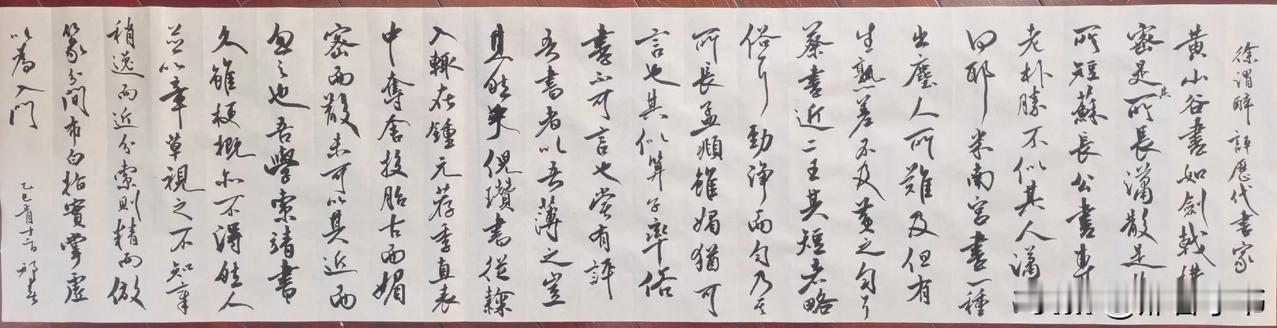 徐渭醉評歷代書家
黄山谷書如劍戟構
密是其所長瀟散是其
所短蘇長公書專
老朴勝不似其人瀟
何耶米南宮書一種
出塵人所難及但有
生熟差不及黄之匀耳
蔡書近二王其短者略
俗耳勁淨而匀乃其
所長孟頫雖媚猶可
言也其似算子率俗
書不可言也嘗有評
吾書者以吾薄之豈
其然乎倪瓚書從隸
入輒在鍾元荐季直表
中奪舍投胎古而媚
密而散未可以其近而
忽之也吾學索靖書
久雖梗概亦不得然人
並以章草視之不知章
稍逸而近分索則精而倣
篆分間布白指實掌虛
以為入門
乙巳